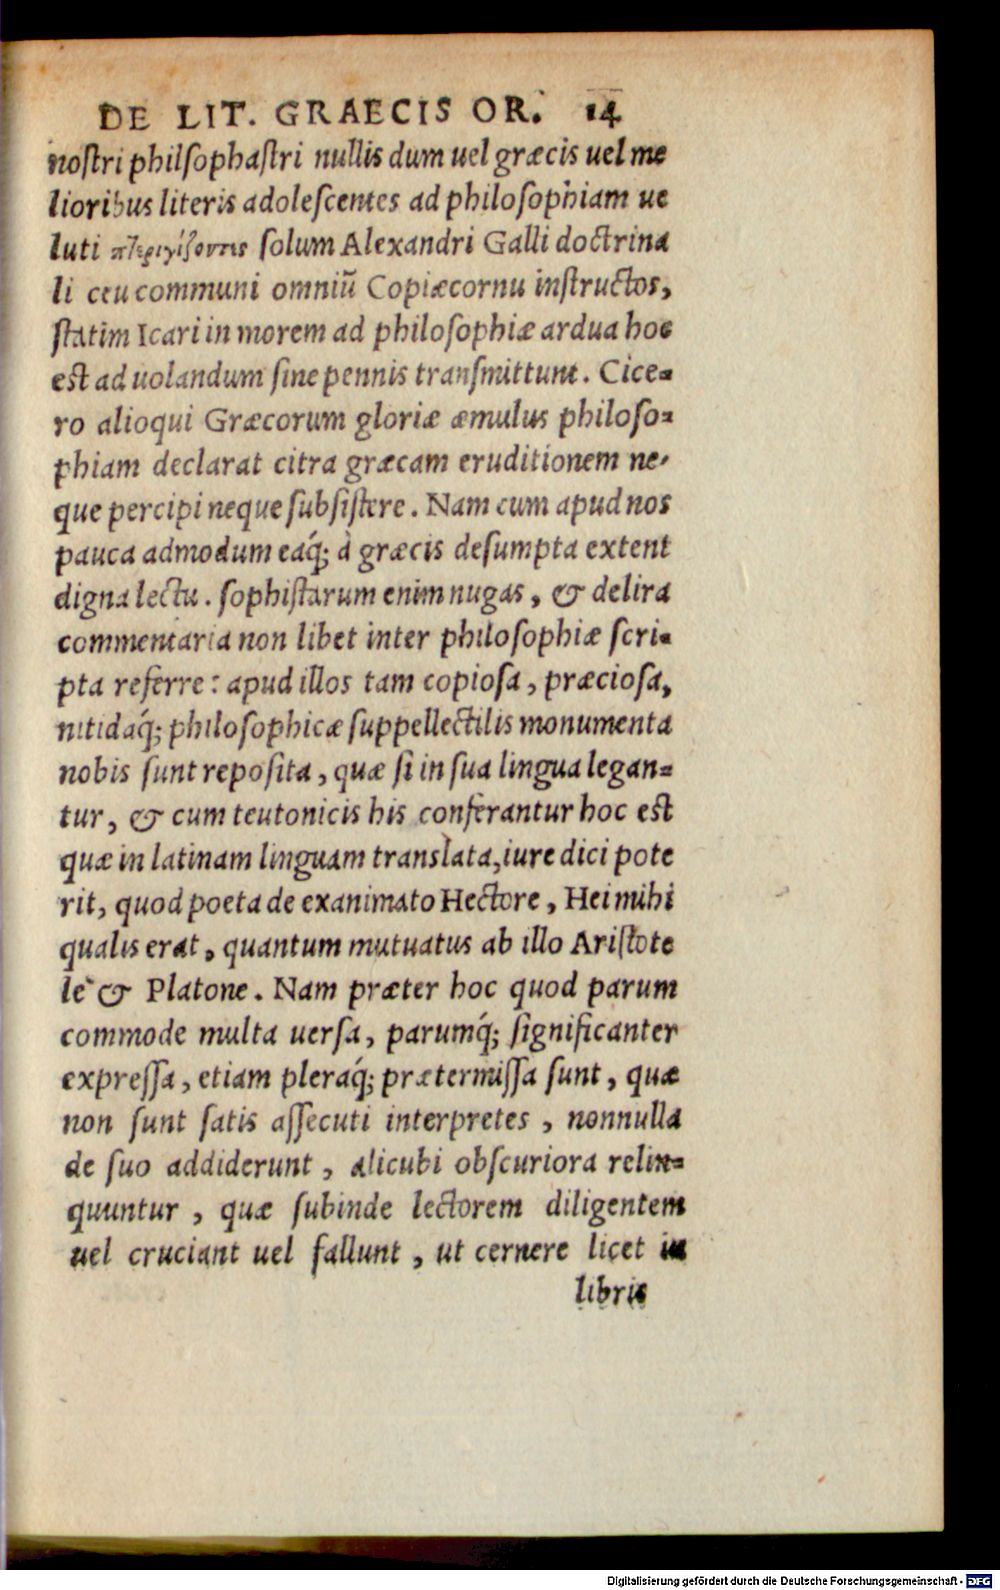 DE LIT. GRAECIS OR. 14
noſtri philſophaſtri nullis dum uel græcis uel me
lioribus literis adoleſcentes ad philoſophiam ue
luti solum Alexandri Galli doctrina
li ceu communi omniū Copiæcornu inſtructos,
ſtatim Icari in morem ad philoſophiæ ardua hoc
est ad uolandum ſine pennis tranſmittunt. Cice-
ro alioqui Græcorum gloriæ æmulus philoſo-
phiam declarat citra græcam eruditionem ne-
que percipi neque ſubſiſtere. Nam cum apud nos
pauca admodum eaq́; à græcis deſumpta extent
digna lectu. ſophiſtarum enim nugas, & delira
commentaria non libet inter philoſophiæ ſcri-
pta referre: apud illos tam copioſa, præcioſa,
nitidaq́; philoſophicæ ſuppellectilis monumenta
nobis ſunt repoſita, quæ ſi in ſua lingua legan-
tur, & cum teutonicis his conferantur hoc est
quæ in latinam linguam translata, iure dici pote
rit, quod poeta de exanimato Hectore, Hei mihi
qualis erat, quantum mutuatus ab illo Ariſtote
le & Platone. Nam præter hoc quod parum
commode multa uerſa, parumq́; ſignificanter
expreſſa, etiam pleraq́; prætermiſſa ſunt, quæ
non ſunt ſatis aſſecuti interpretes, nonnulla
de ſuo addiderunt, alicubi obſcuriora relin-
quuntur, quæ ſubinde lectorem diligentem
uel cruciant uel fallunt, ut cernere licet in
libris
Digitalisierung gefördert durch die Deutsche Forschungsgemeinschaft - DFG